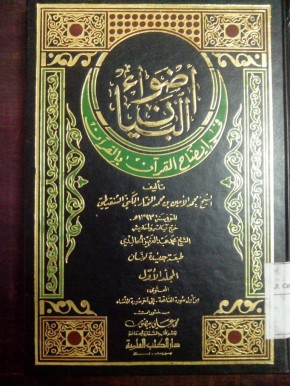 أضواء
البيان
في إيضاح القرآن بالقرآن
تأليف
الشيخ محمد الأمين بن محمد المختار الجكني الشنقيطي
المتوفى سنة ١٣٩٣هـ
خرج آياته وأحاديثه
الشيخ محمد عبد العزيز الخالدي
المجلد الأول
المحتوى
من أول سورة الفاتحة - إلى آخر سورة النساء
منشورات
محمد علي بيضون
دار الكتب العلمية